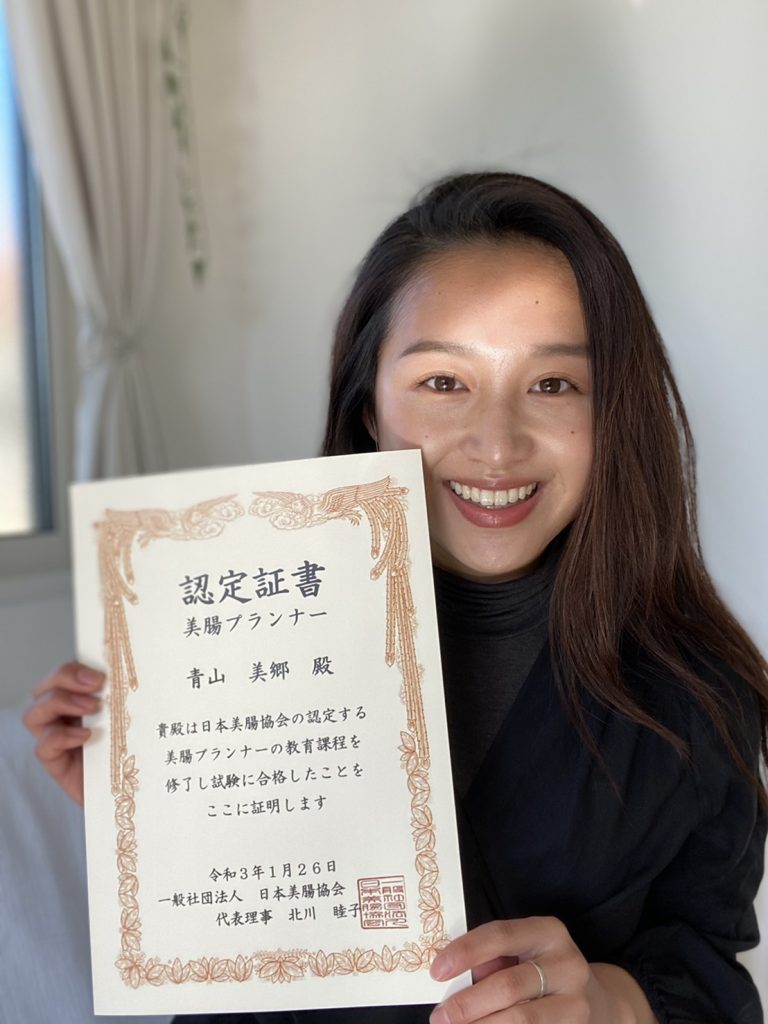 認定証書
美腸プランナー
青山 美郷 殿
貴殿は日本美腸協会の認定する
美腸プランナーの教育課程を
修了し試験に合格したことを
ここに証明します
令和3年1月26日
一般社団法人 日本美腸協会
代表理事 北川 睦子